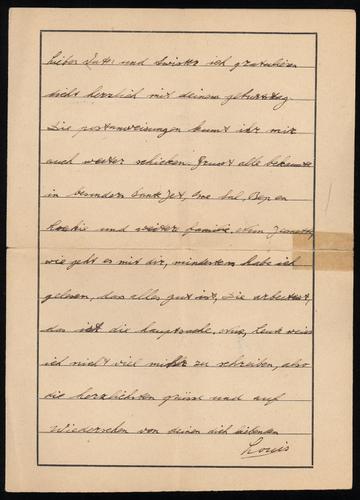 lieber Vater und Swister ich gratulieren
dich herzlich mit deinem geburtstag.
Die postanweisungen kunt ihr mir
auch weiter schicken. Grusst alle bekannte
in besondern tante Jet, ome Sal, Bep en
und weiter familie. Nun Jeanette,
wie geht es mit dir, mindestens habe ich
gelesen, das alles gut ist, Sie arbeitest,
das ist die hauptsache. Nun, Leute weis
ich nicht viel mehr zu schreiben, also
die herzlichsten grüsse und auf
Wiedersehen von deinen dich liebenden
Louis